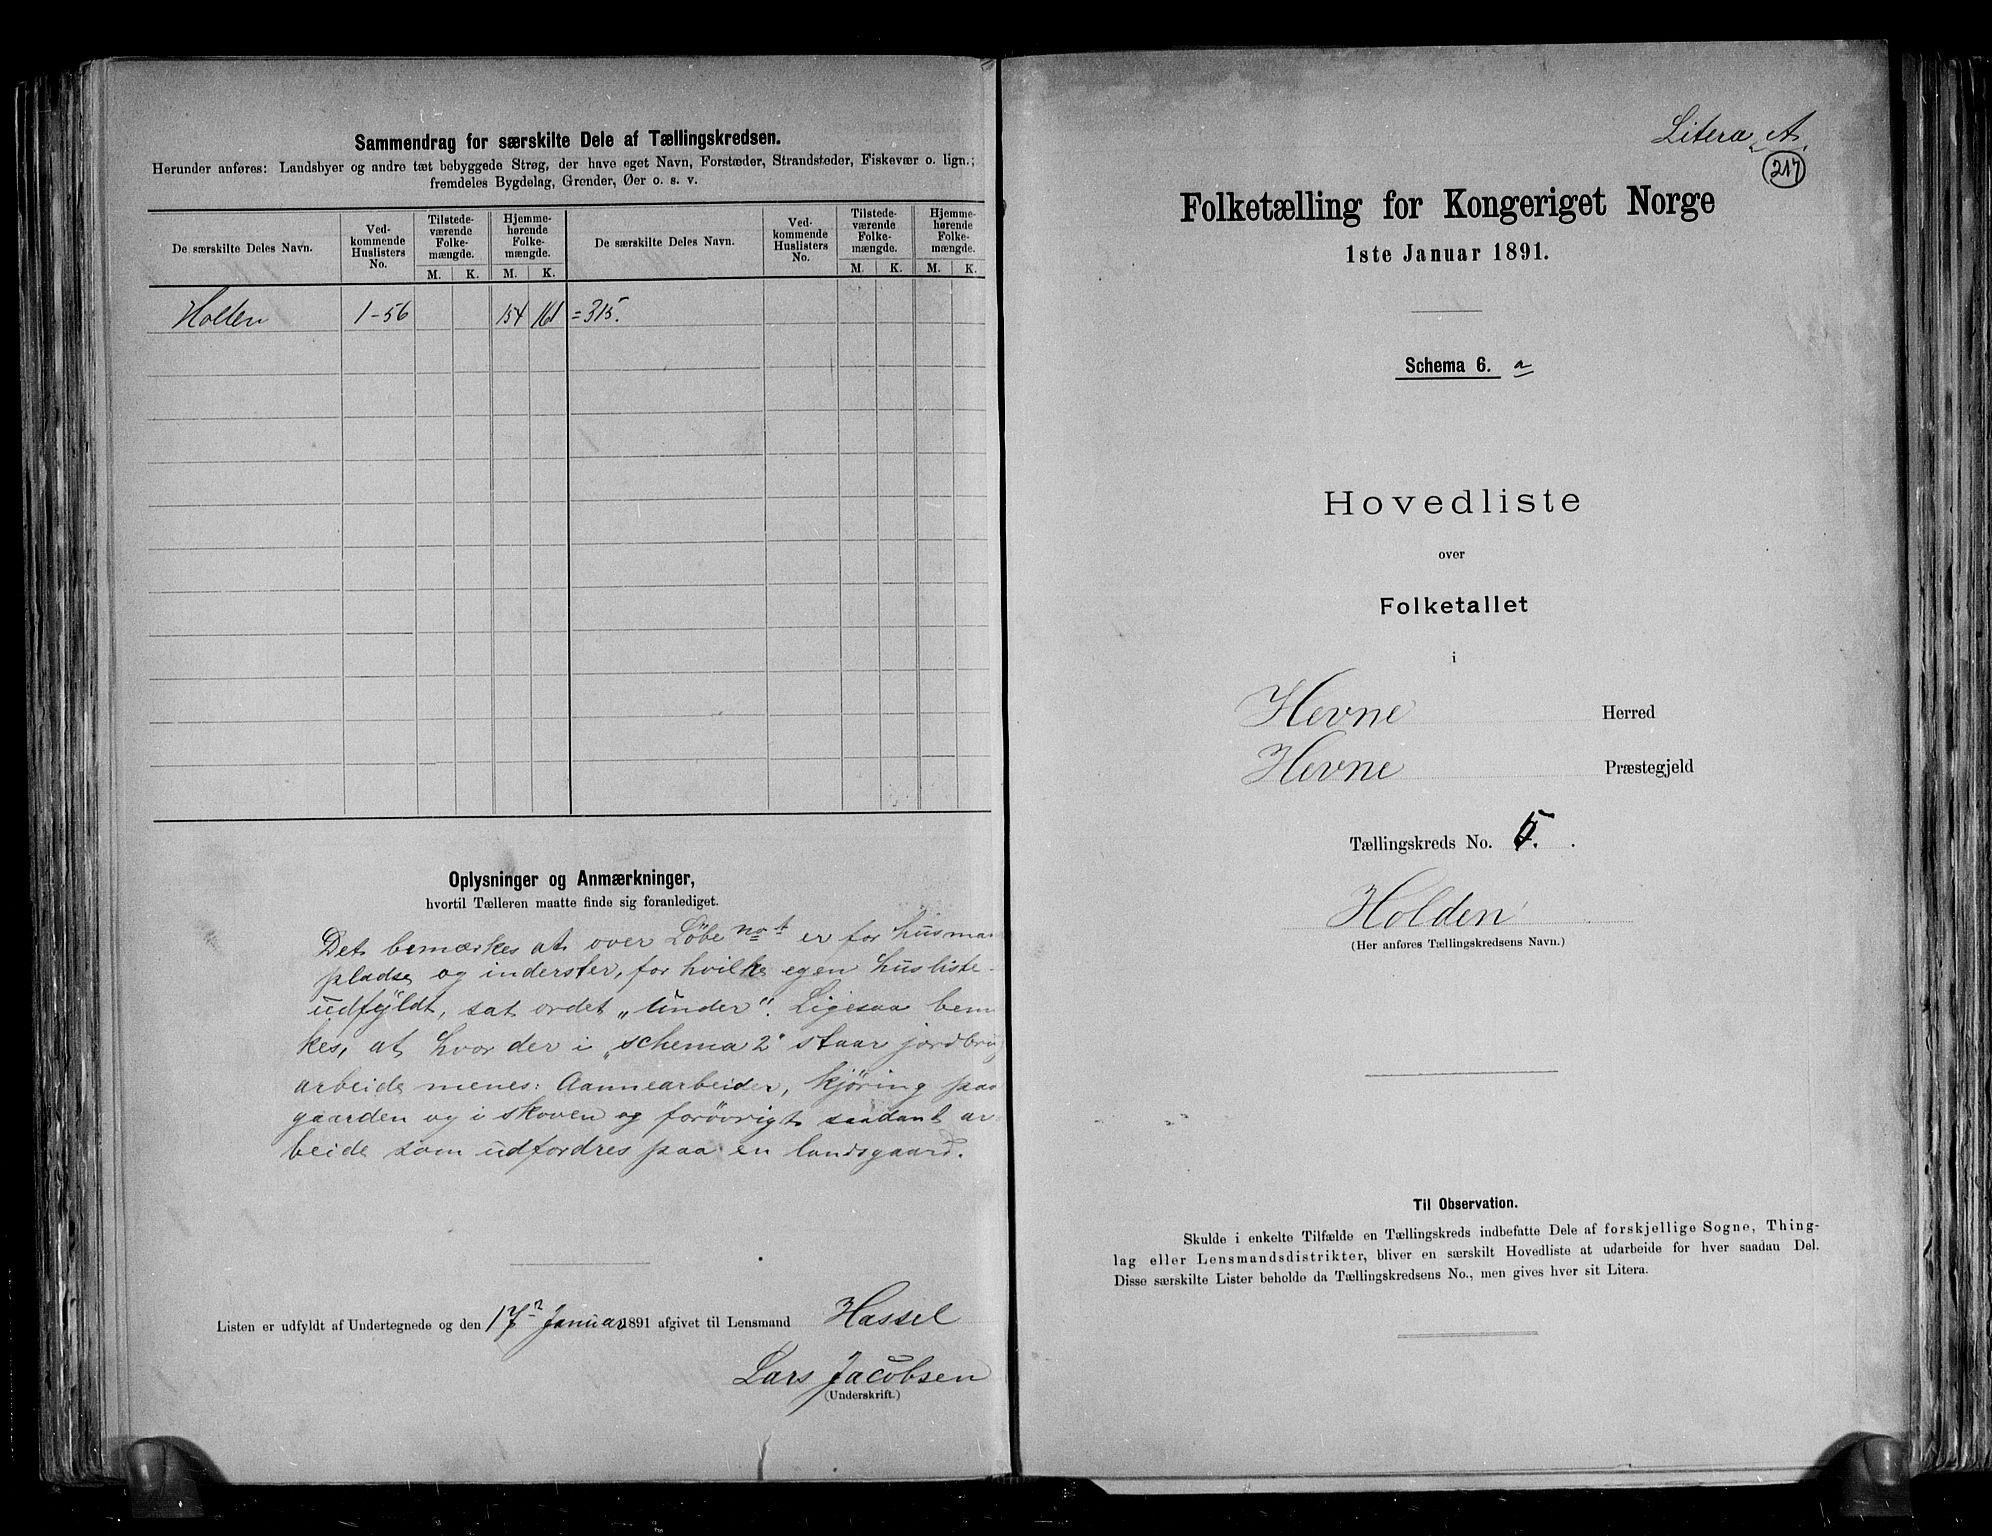 Sammendrag for særskilte Dele af Tællingskredsen.
Herunder anføres: Landsbyer og andre tæt bebyggede Strøg, der have eget Navn, Forstæder, Strandsteder, Fiskevær o. lign.;
fremdeles Bygdelag, Grender, Øer o. s. v.
De særskilte Deles Navn. Ved-kommende Huslisters No. Tilstede-værende Folke-mængde. Hjemme-hørende Folke-mængde. De særskilte Deles Navn. Ved-kommende Huslisters No. Tilstede-værende Folke-mængde. Hjemme-hørende Folke-mængde.
M. K. M. K. M. K. M. K.
Holden 1-56 154 161 = 315.
Oplysninger og Anmærkninger,
hvortil Tælleren maatte finde sig foranlediget.
Det bemærkes at over Löbe no er for husma
pladse og inderster, for hvilke egen husliste
udfyldt, sat ordet „under". Ligesaa bem
kes, at hvor der i „schema 2" staar jordbrug
arbeide menes: Aannearbeider, kjöring paa
gaarden og i skoven og forövrigt saadant ar-
beide som udfordres paa en landsgaard.
Listen er udfyldt af Undertegnede og den 17 Januar 1891 afgivet til Lensmand Hassel
Lars Jacobsen
(Underskrift.)
Litera A.
217
Folketælling for Kongeriget Norge
1ste Januar 1891.
Schema 6. a
Hovedliste
over
Folketallet
i
Hevne Herred
Hevne Præstegjeld
Tællingskreds No. 5.
Holden
(Her anføres Tællingskredsens Navn.)
Til Observation.
Skulde i enkelte Tilfælde en Tællingskreds indbefatte Dele af forskjellige Sogne, Thing-
lag eller Lensmandsdistrikter, bliver en særskilt Hovedliste at udarbeide for hver saadan Del.
Disse særskilte Lister beholde da Tællingskredsens No., men gives hver sit Litera.